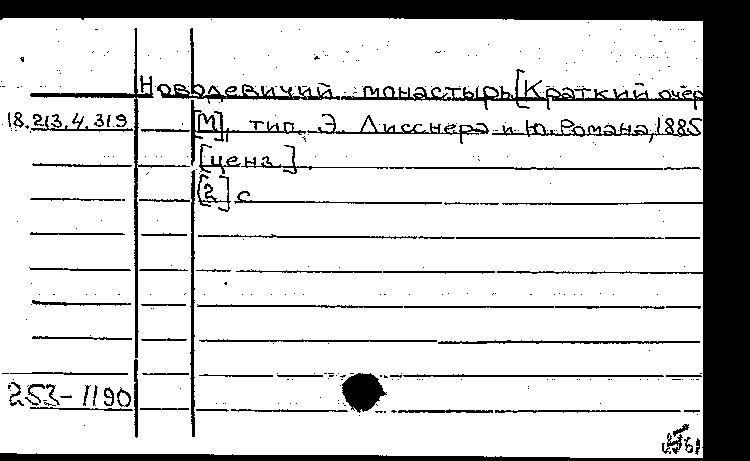 Новодевичий монастырь [Краткий очер
18.213.4.319 [М], тип. Э. Лисснера и Ю. Романа, 1885
[ценз].
[2] с
253-1190